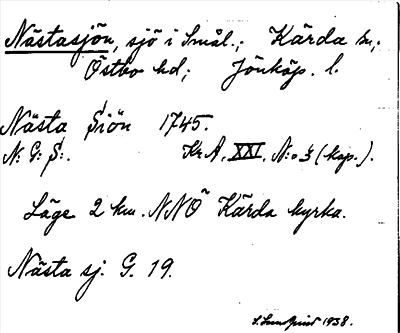 Nästasjön, sjö i Smål.; Kärda sn;
Östbo hd; Jönköp. l.
Nästa Siön 1745.
N: G: S:. Kr.A. XXI. N:o 3 (kop.).
Läge 2 km. NNÖ Kärda kyrka.
Nästa sj. G. 19.
1938.